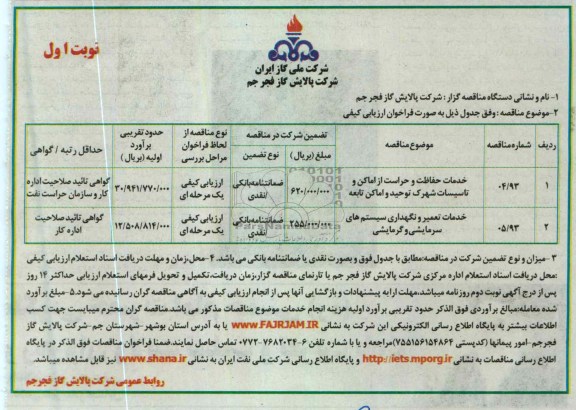 نوبت اول
شرکت ملی گاز ایران
شرکت پالایش گاز فجر جم
۱- نام و نشانی دستگاه مناقصه گزار: شرکت پالایش گاز فجر جم
۲-موضوع مناقصه: وفق جدول ذیل به صورت فراخوان ارزیابی کیفی
ردیف | شماره‌مناقصه | موضوع‌مناقصه | تضمین شرکت در مناقصه | نوع مناقصه از لحاظ فراخوان مراحل بررسی | حدود تقریبی برآورد اولیه (بریال) | حداقل رتبه / گواهی
مبلغ (بریال) | نوع تضمین
۱ | ۰۴/۹۳ | خدمات حفاظت و حراست از اماکن و تاسیسات شهرک توحید و اماکن تابعه | ۶۲۰/۰۰۰/۰۰۰ | ضمانتنامه‌بانکی /نقدی | ارزیابی کیفی یک مرحله ای | ۳۰/۹۴۱/۷۷۰/۰۰۰ | گواهی تائید صلاحیت اداره کار و سازمان حراست نفت
۲ | ۰۵/۹۳ | خدمات تعمیر و نگهداری سیستم های سرمایشی و گرمایشی | ۲۵۵/۰۰۰/۰۰۰ | ضمانتنامه‌بانکی /نقدی | ارزیابی کیفی یک مرحله ای | ۱۲/۵۰۸/۸۱۴/۰۰۰ | گواهی تائید صلاحیت اداره کار
۳ -میزان و نوع تضمین شرکت در مناقصه:مطابق با جدول فوق و بصورت نقدی یا ضمانتنامه بانکی می باشد. ۴-محل،زمان و مهلت دریافت اسناد استعلام ارزیابی کیفی
:محل دریافت اسناد استعلام اداره مرکزی شرکت پالایش گاز فجر جم یا تارنمای مناقصه گزار،زمان دریافت،تکمیل و تحویل فرمهای استعلام ارزیابی حداکثر ۱۴ روز
پس از درج آگهی نوبت دوم روزنامه میباشد.مهلت ارایه پیشنهادات و بازگشایی آنها پس از انجام ارزیابی کیفی به آگاهی مناقصه گران رسانیده می شود.۵-مبلغ برآورد
شده معامله:مبالغ برآوردی فوق الذکر حدود تقریبی برآورد اولیه هزینه انجام خدمات موضوع مناقصات مذکور می باشد.مناقصه گران محترم میبایست جهت کسب
اطلاعات بیشتر به پایگاه اطلاع رسانی الکترونیکی این شرکت به نشانی WWW.FAJRJAM.IR یا به آدرس استان بوشهر-شهرستان جم-شرکت پالایش گاز
فجرجم-امور پیمانها (کدپستی ۷۵۵۱۵۶۱۵۴۸۶۴)مراجعه و یا با شماره تلفن ۶-۷۶۸۲۰۳۴-۰۷۷۳ تماس حاصل نمایند.ضمنا فراخوان مناقصات فوق الذکر در پایگاه
اطلاع رسانی مناقصات به نشانی http://iets.mporg.ir و پایگاه اطلاع رسانی شرکت ملی نفت ایران به نشانی www.shana.ir نیز قابل مشاهده میباشد.
روابط عمومی شرکت پالایش گاز فجر جم